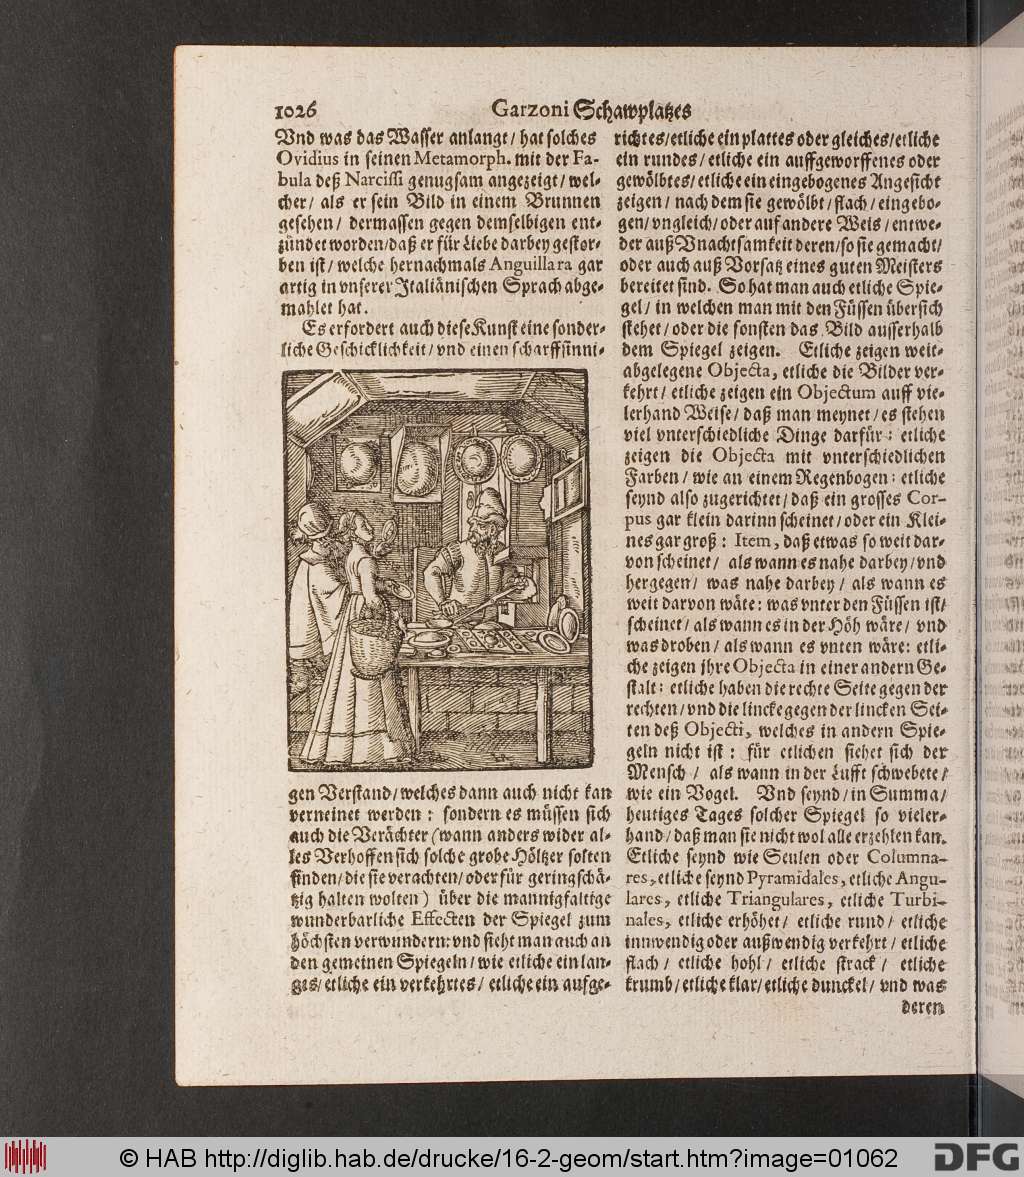 1026
Garzoni Schawplatzes
Vnd was das Wasser anlangt/ hat solches
Ovidius in seinen Metamorph. mit der Fa-
bula deß Narcissi genugsam angezeigt/ wel-
cher/ als er sein Bild in einem Brunnen
gesehen/ dermassen gegen demselbigen ent-
zündet worden/ daß er für Liebe darbey gestor-
ben ist/ welche hernachmals Anguillara gar
artig in vnserer Italiänischen Sprach abge-
mahlet hat.
Es erfordert auch diese Kunst eine sonder-
liche Geschicklichkeit/ vnd einen scharffsinni-
gen Verstand/ welches dann auch nicht kan
verneinet werden: sondern es müssen sich
auch die Verächter (wann anders wider al-
les Verhoffen sich solche grobe Höltzer solten
finden/ die sie verachten/ oder für geringschä-
tzig halten wolten) über die mannigfaltige
wunderbarliche Effecten der Spiegel zum
höchsten verwundern: vnd sieht man auch an
den gemeinen Spiegeln/ wie etliche ein lan-
ges/ etliche ein verkehrtes/ etliche ein aufge-
richtes/ etliche ein plattes oder gleiches/ etliche
ein rundes/ etliche ein auffgeworffenes oder
gewölbtes/ etliche ein eingebogenes Angesicht
zeigen/ nach dem sie gewölbt/ flach/ eingebo-
gen/ vngleich/ oder auf andere Weis/ entwe-
der auß Vnachtsamkeit deren/ so sie gemacht/
oder auch auß Vorsatz eines guten Meisters
bereitet sind. So hat man auch etliche Spie-
gel/ in welchen man mit den Füssen übersich
stehet/ oder die sonsten das Bild ausserhalb
dem Spiegel zeigen. Etliche zeigen weit-
abgelegene Objecta, etliche die Bilder ver-
kehrt/ etliche zeigen ein Objectum auff vie-
lerhand Weise/ daß man meynet/ es stehen
viel vnterschiedliche Dinge darfür: etliche
zeigen die Objecta mit vnterschiedlichen
Farben/ wie an einem Regenbogen: etliche
seynd also zugerichtet/ daß ein grosses Cor-
pus gar klein darinn scheinet/ oder ein Klei-
nes gar groß: Item, daß etwas so weit dar-
von scheinet/ als wann es nahe darbey/ vnd
hergegen/ was nahe darbey/ als wann es
weit darvon wäre: was vnter den Füssen ist/
scheinet/ als wann es in der Höh wäre/ vnd
was droben/ als wann es vnten wäre: etli-
che zeigen jhre Objecta in einer andern Ge-
stalt: etliche haben die rechte Seite gegen der
rechten/ vnd die lincke gegen der lincken Sei-
ten deß Objecti, welches in andern Spie-
geln nicht ist: für etlichen siehet sich der
Mensch/ als wann in der Lufft schwebete/
wie ein Vogel. Vnd seynd/ in Summa/
heutiges Tages solcher Spiegel so vieler-
hand/ daß man sie nicht wol alle erzehlen kan.
Etliche seynd wie Seulen oder Columna-
res, etliche seynd Pyramidales, etliche Angu-
lares, etliche Triangulares, etliche Turbi-
nales, etliche erhöhet/ etliche rund/ etliche
innwendig oder außwendig verkehrt/ etliche
flach/ etliche hohl/ etliche strack/ etliche
krumb/ etliche klar/ etliche dunckel/ vnd was
deren
© HAB http://diglib.hab.de/drucke/16-2-geom/start.htm?image=01062
DFG